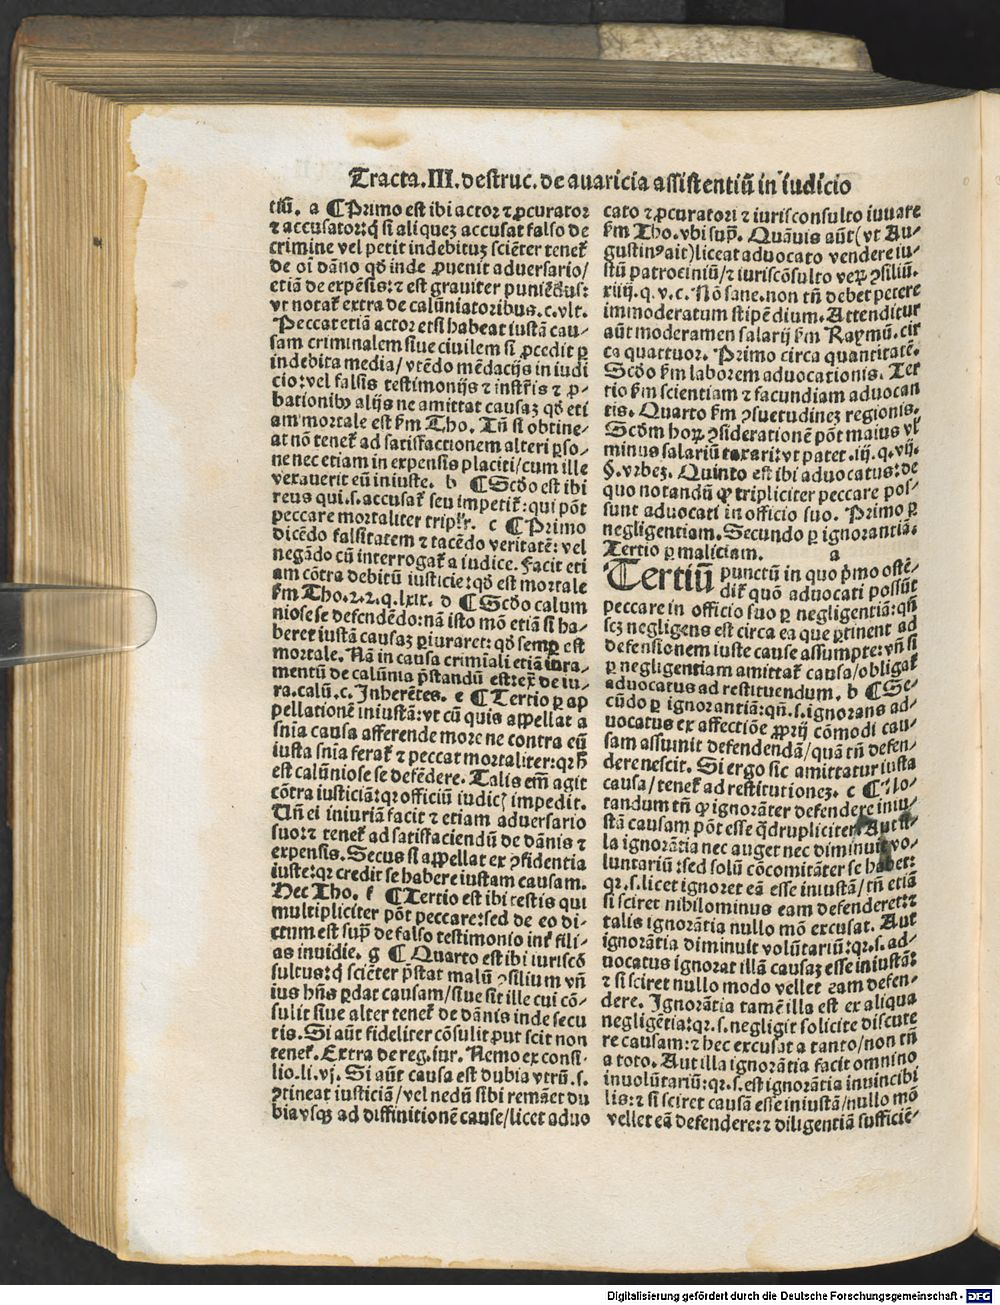 Tracta.III.destruc.de auaricia assistentiū in iudicio
tiū. a ¶ Primo est ibi actor ⁊ ꝓcurator
⁊ accusator: q̇ si aliqueꝫ accusat falso de
crimine vel petit indebituꝫ sciēter teneť
de oī dāno qđ inde ꝓuenit aduersario/
etiā de expēsis: ⁊ est grauiter puniēdus:
vt notať extra de calūniatoribus.c.vlt.
Peccat etiā actor etsi habeat iustā cau⸗
sam criminalem siue ciuilem si ꝓcedit ꝑ
indebita media/vtēdo mēdacijs in iudi
cio: vel falsis testimonijs ⁊ instr̄is ⁊ ꝓ⸗
bationibꝰ alijs ne amittat causaꝫ qđ eti
am mortale est ẜm Tho. Tn̄ si obtine⸗
at nō teneť ad satisfactionem alteri ꝑso⸗
ne nec etiam in expensis placiti/cum ille
vexauerit eū iniuste. b ¶ Scđo est ibi
reus qui.s.accusať seu impetiť: qui pōt
peccare mortaliter tripl'r. c ¶ Primo
dicēdo falsitatem ⁊ tacēdo veritatē: vel
negādo cū interrogať a iudice. Facit eti
am cōtra debitū iusticie: qđ est mortale
ẜm Tho.2.2.q.lxix. d ¶ Scđo calum
niose se defendēdo: nā isto mō etiā si ha⸗
beret iustā causaꝫ ꝑiuraret: qđ semꝑ est
mortale. Nā in causa crimīali etiā iura⸗
mentū de calūnia p̄standū est: ex̄ de iu⸗
ra.calū.c. Inherētes. e ¶ Tertio ꝑ ap
pellationē iniustā: vt cū quis appellat a
sn̄ia causa afferende more ne contra eū
iusta sn̄ia feraťt ⁊ peccat mortaliter: qꝛ h̄
est calūniose se defēdere. Talis em̄ agit
cōtra iusticiā: qꝛ officiū iudicꝭ impedit.
Un̄ ei iniuriā facit ⁊ etiam aduersario
suo: ⁊ teneť ad satisfaciendū de dānis ⁊
expensis. Secus si appellat ex ꝯfidentia
iuste: qꝛ credit se habere iustam causam.
Hec Tho. f ¶ Tertio est ibi testis qui
multipliciter pōt peccare: sed de eo di⸗
ctum est sup̄ de falso testimonio int̄ fili⸗
as inuidie. g ¶ Quarto est ibi iuriscō
sultus: q̇ sciēter p̄stat malū ꝯsilium vn̄
ius hn̄s ꝑdat causam/siue sit ille cui cō⸗
sulit siue alter teneť de dānis inde secu
tis. Si aūt fideliter cōsulit ꝓut scit non
teneť. Extra de reg.iur. Nemo ex consi⸗
lio.li.vj. Si aūt causa est dubia vtrū.s.
ꝯtineat iusticiā/vel nedū sibi remāet du
bia vsqꝫ ad diffinitionē cause/licet aduo
cato ⁊ ꝓcuratori ⁊ iurisconsulto iuuare
ẜm Tho.vbi sup̄. Quāuis aūt (vt Au⸗
gustinꝰ ait) liceat aduocato vendere iu⸗
stū patrociniū/⁊ iuriscōsulto veꝝ ꝯsiliū.
xiiij.q.v.c. Nō sane. non tn̄ debet petere
immoderatum stipēdium. Attenditur
aūt moderamen salarij ẜm Raymū. cir
ca quattuor. Primo circa quantitatē.
Scđo ẜm laborem aduocationis. Ter
tio ẜm scientiam ⁊ facundiam aduocan
tis. Quarto ẜm ꝯsuetudineꝫ regionis.
Scđm hoꝝ ꝯsiderationē pōt maius vl'
minus salariū taxari: vt patet.iij.q.vij.
§.vrbeꝫ. Quinto est ibi aduocatus: de
quo notandū ꝙ tripliciter peccare pos⸗
sunt aduocati in officio suo. Primo ꝑ
negligentiam. Secundo ꝑ ignorantiā.
Tertio ꝑ maliciam. a
Tertiū punctū in quo p̄mo ostē⸗
diť quō aduocati possūt
peccare in officio suo ꝑ negligentiā: qn̄
scꝫ negligens est circa ea que ꝑtinent ad
defensionem iuste cause assumpte: vn̄ si
ꝑ negligentiam amittať causa/obligať
aduocatus ad restituendum. b ¶ Se⸗
cūdo ꝑ ignorantiā: qn̄.s.ignorans ad⸗
uocatus ex affectiōe ꝓprij cōmodi cau⸗
sam assumit defendendā/quā tn̄ defen⸗
dere nescit. Si ergo sic amittatur iusta
causa/teneť ad restitutioneꝫ. c ¶ No⸗
tandum tn̄ ꝙ ignorāter defendere iniu⸗
stā causam pōt esse q̄drupliciter. Aut il⸗
la ignorātia nec auget nec diminuit vo⸗
luntariū: sed solū cōcomitāter se habet:
qꝛ.s.licet ignoret eā esse iniustā/tn̄ etiā
si sciret nihilominus eam defenderet: ⁊
talis ignorātia nullo mō excusat. Aut
ignorātia diminuit volūtariū: qꝛ.s.ad⸗
uocatus ignorat illā causaꝫ esse iniustā:
⁊ si sciret nullo modo vellet eam defen⸗
dere. Ignorātia tamē illa est ex aliqua
negligētia: qꝛ.s.negligit solicite discute
re causam: ⁊ hec excusat a tanto/non tn̄
a toto. Aut illa ignorātia facit omnino
inuolūtariū: qꝛ.s.est ignorātia inuincibi
lis: ⁊ si sciret causā esse iniustā/nullo mō
vellet eā defendere: ⁊ diligentiā sufficiē⸗
Digitalisierung gefördert durch die Deutsche Forschungsgemeinschaft - DFG